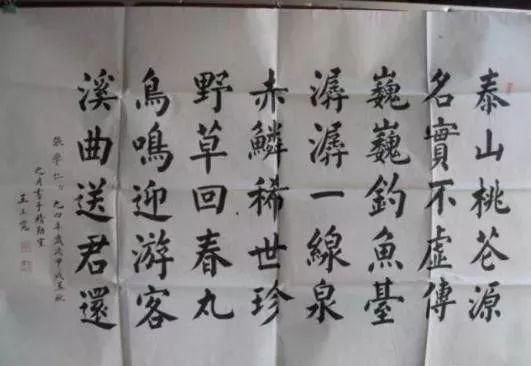 泰山桃花源
名實不虛傳
巍巍釣魚臺
潺潺一線泉
赤鱗稀世珍
野草回春丸
鳥鳴迎游客
溪曲送君還